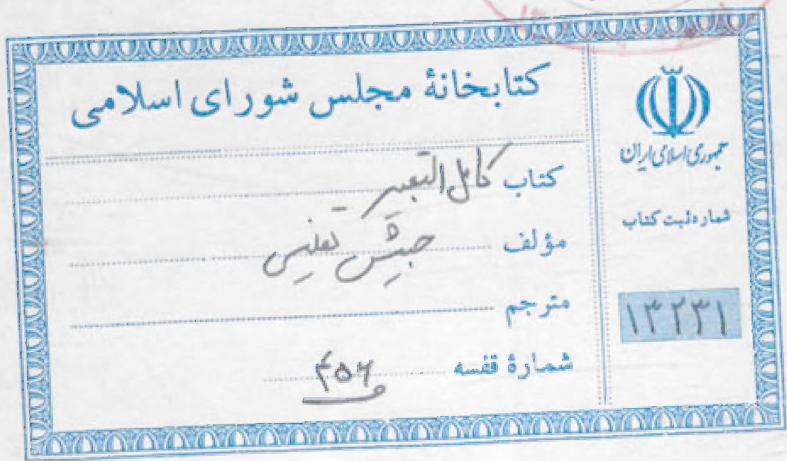 کتابخانهٔ مجلس شورای اسلامی
کتاب کامل التعبیر
مؤلف حبیش تفلیسی
مترجم
شمارهٔ قفسه ۴۵۶
جمهوری اسلامی ایران
شماره ثبت کتاب
۱۳۲۳۱